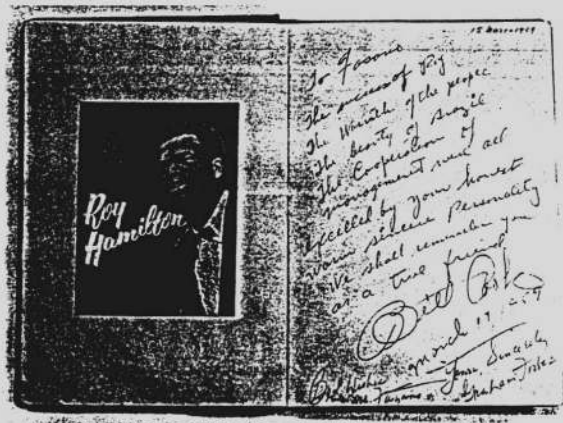 Roy
Hamilton
To
The success of Roy
The Warmth of the people
The beauty of Brazil
The Cooperation of
management were all
excelled by your honest
warm sincere Personality
We shall remember you
as a true friend
Bill Cook
March 17
Yours Sincerely
Graham